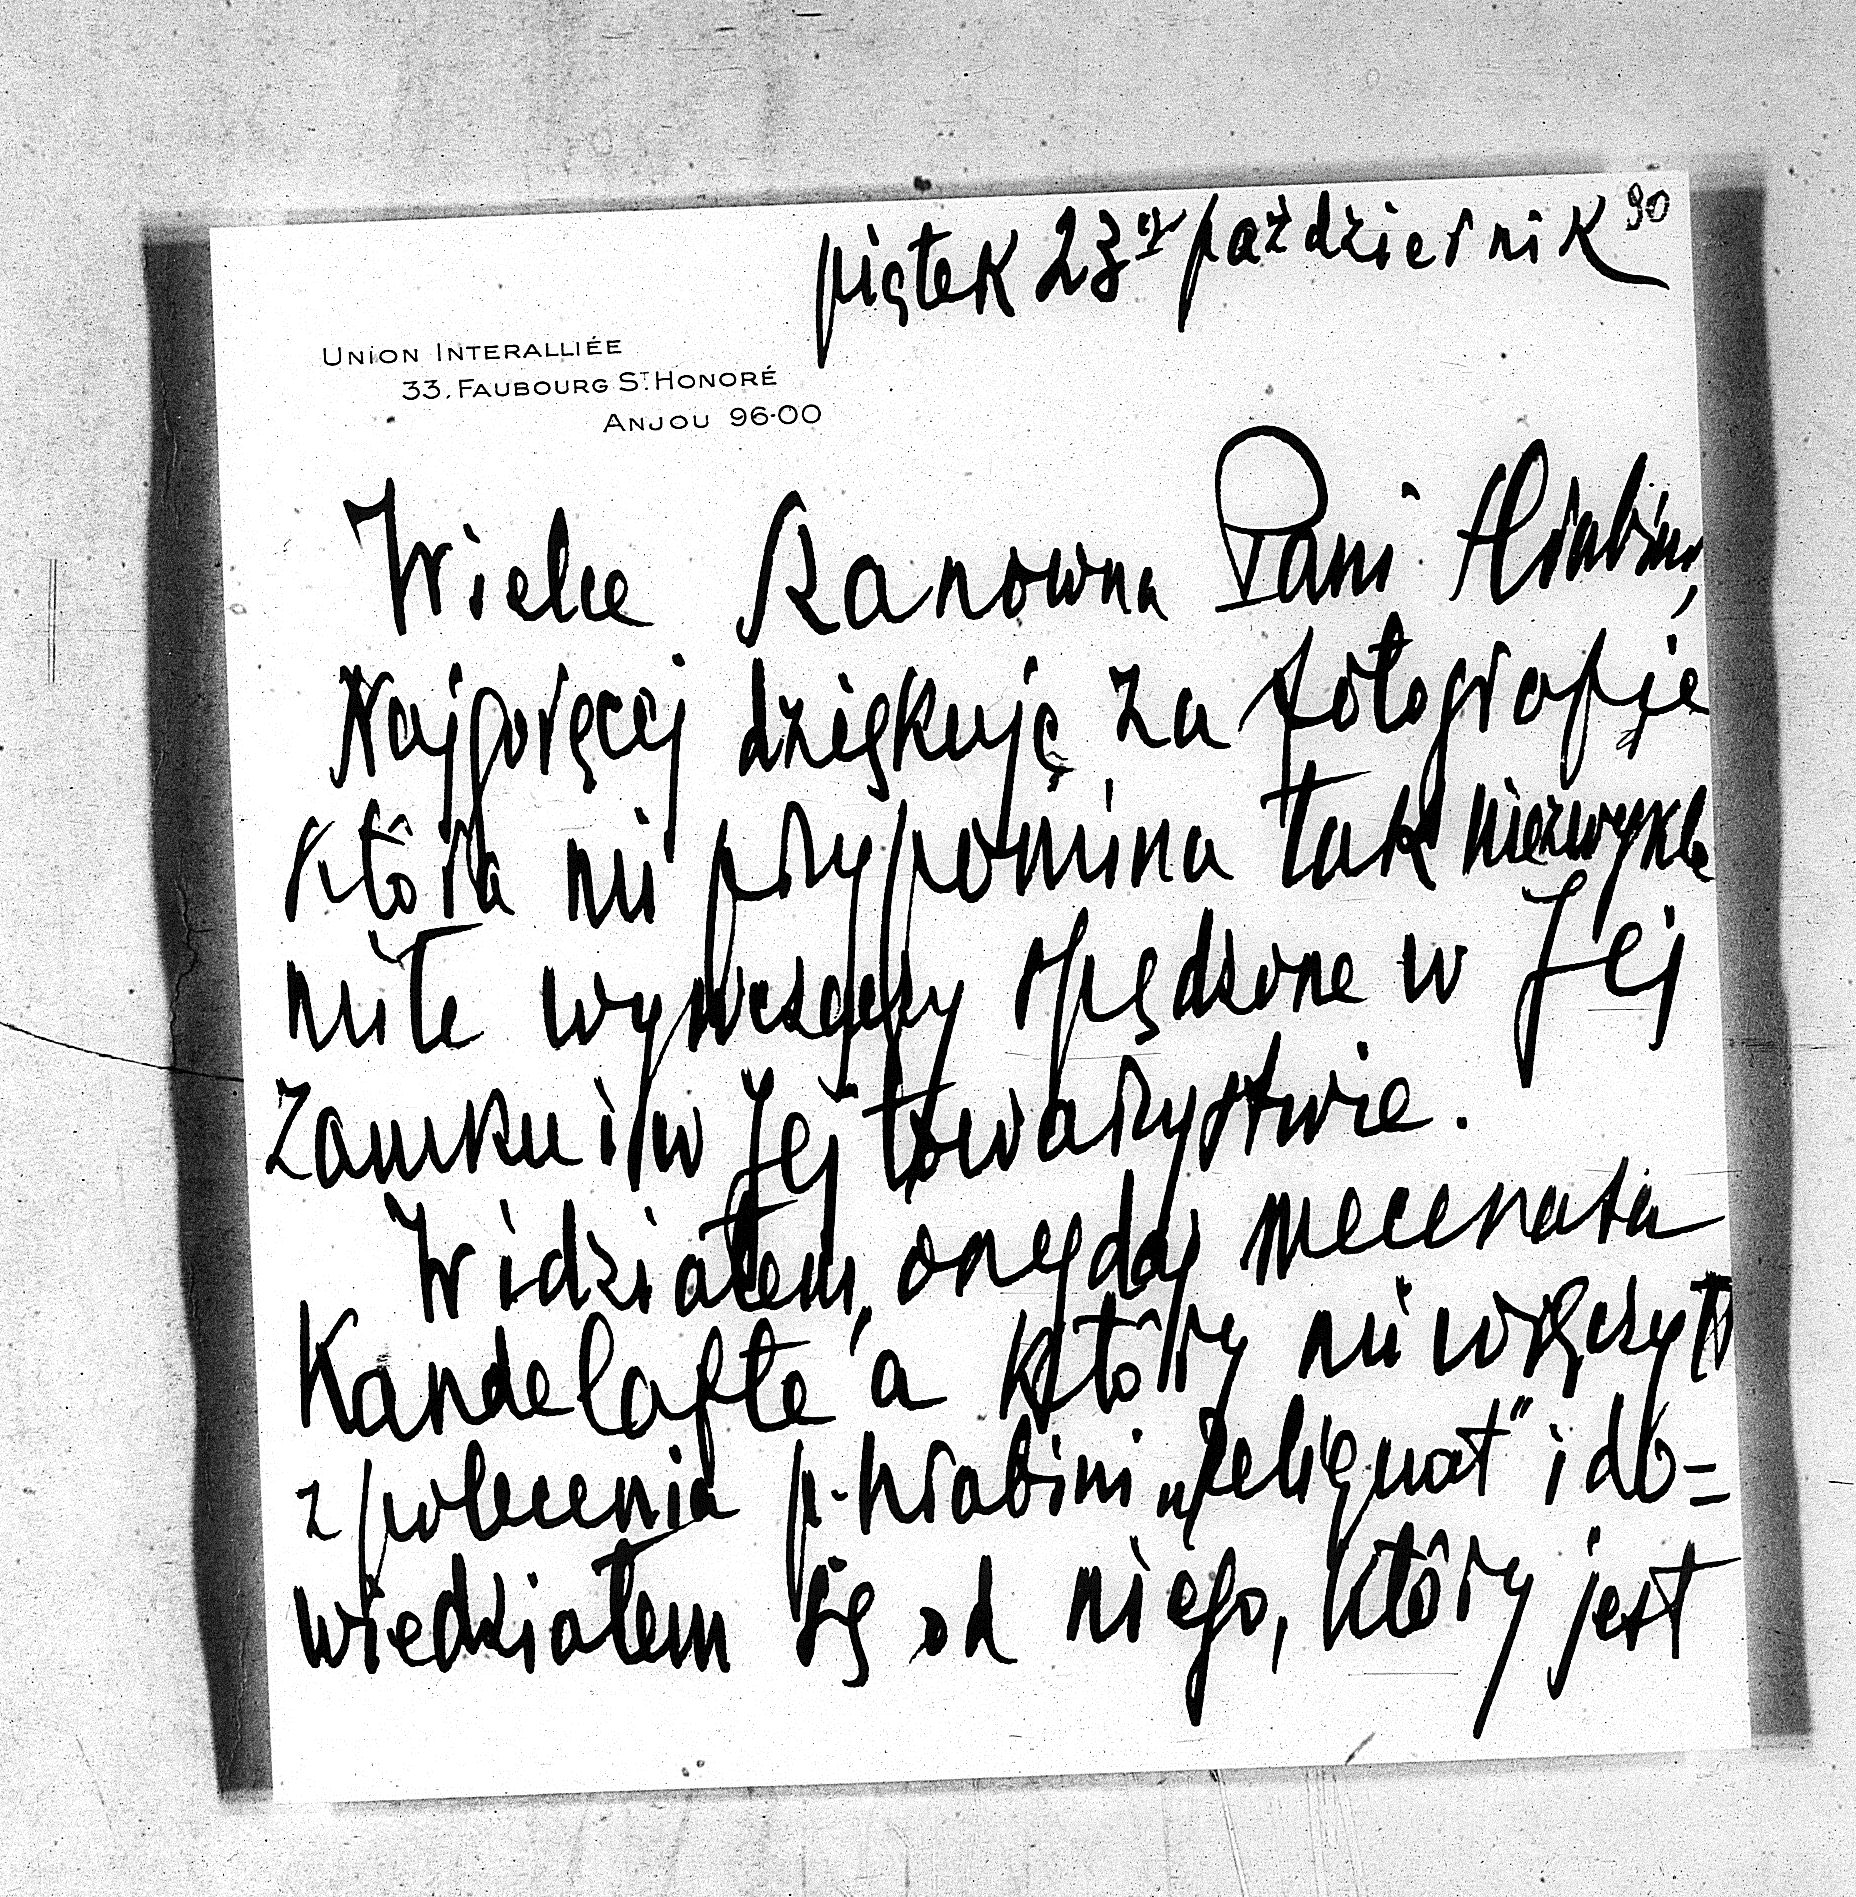 90
piątek 23go październik
UNION INTERALLIÉE
33, FAUBOURG ST. HONORÉ
ANJOU 96-00
Wielce Szanowna Pani Hrabino,
Najgoręcej dziękuję za fotografię
która mi przypomina tak niezwykle
miłe wywczasy spędzone w Jej
zamku i w Jej towarzystwie.
Widziałem onegdaj mecenasa
Kandelafte'a który mi wręczył
z polecenia p. hrabini „Reliquat" i do=
wiedziałem się od niego, który jest